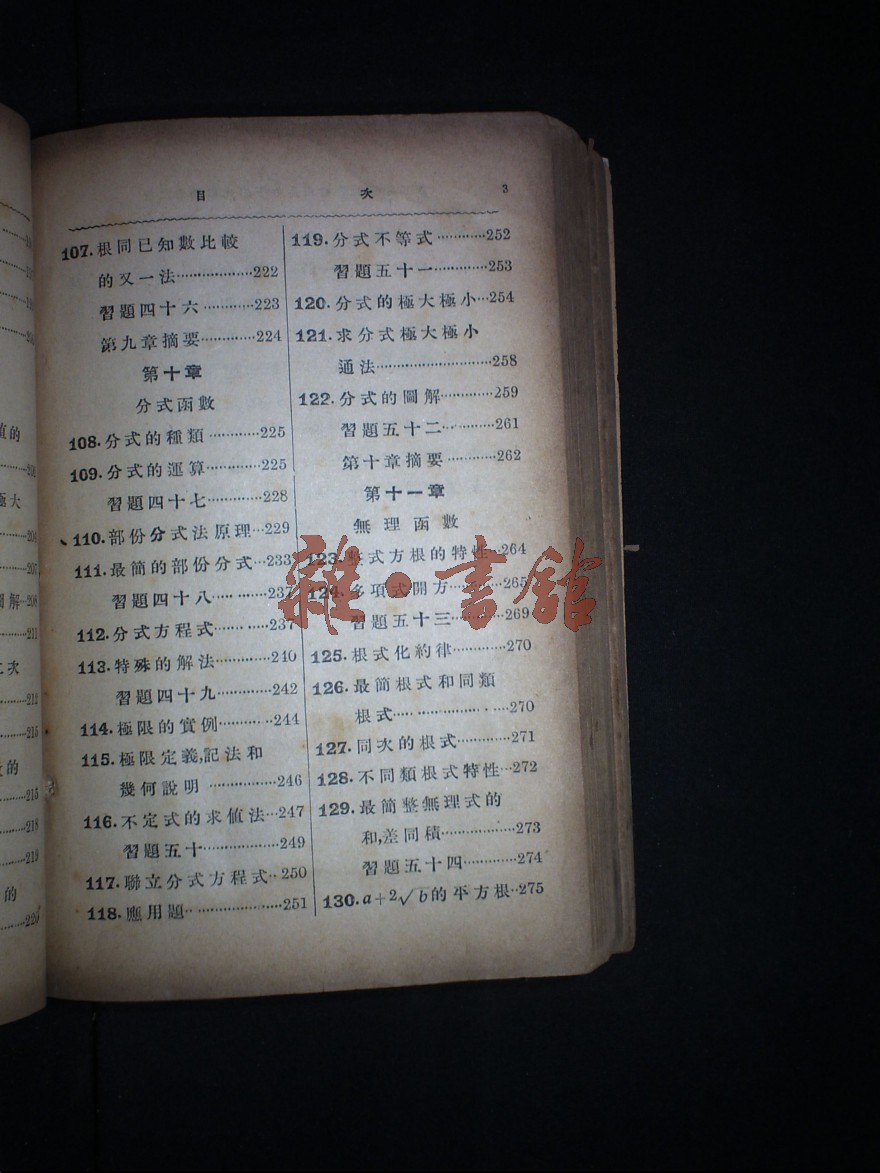 目 次 3
107.根同已知數比較
的又一法………………222
習題四十六…………223
第九章摘要…………224
第十章
分式函數
108.分式的種類…………225
109.分式的運算…………225
習題四十七…………228
110.部份分式法原理…229
111.最簡的部份分式…233
習題四十八…………237
112.分式方程式…………237
113.特殊的解法…………240
習題四十九…………242
114.極限的實例…………244
115.極限定義,記法和
幾何說明……………246
116.不定式的求值法…247
習題五十……………249
117.聯立分式方程式…250
118.應用題………………251
119.分式不等式…………252
習題五十一…………253
120.分式的極大極小…254
121.求分式極大極小
通法…………………258
122.分式的圖解…………259
習題五十二…………261
第十章摘要…………262
第十一章
無理函數
123.整式方根的特性…264
124.多項式開方…………265
習題五十三…………269
125.根式化約律…………270
126.最簡根式和同類
根式…………………270
127.同次的根式…………271
128.不同類根式特性…272
129.最簡整無理式的
和,差同積……………273
習題五十四…………274
130.a+2√b的平方根…275
雜·書館
值的
極大
204
207
圖解…208
211
二次
212
215
的
215
218
219
的
220